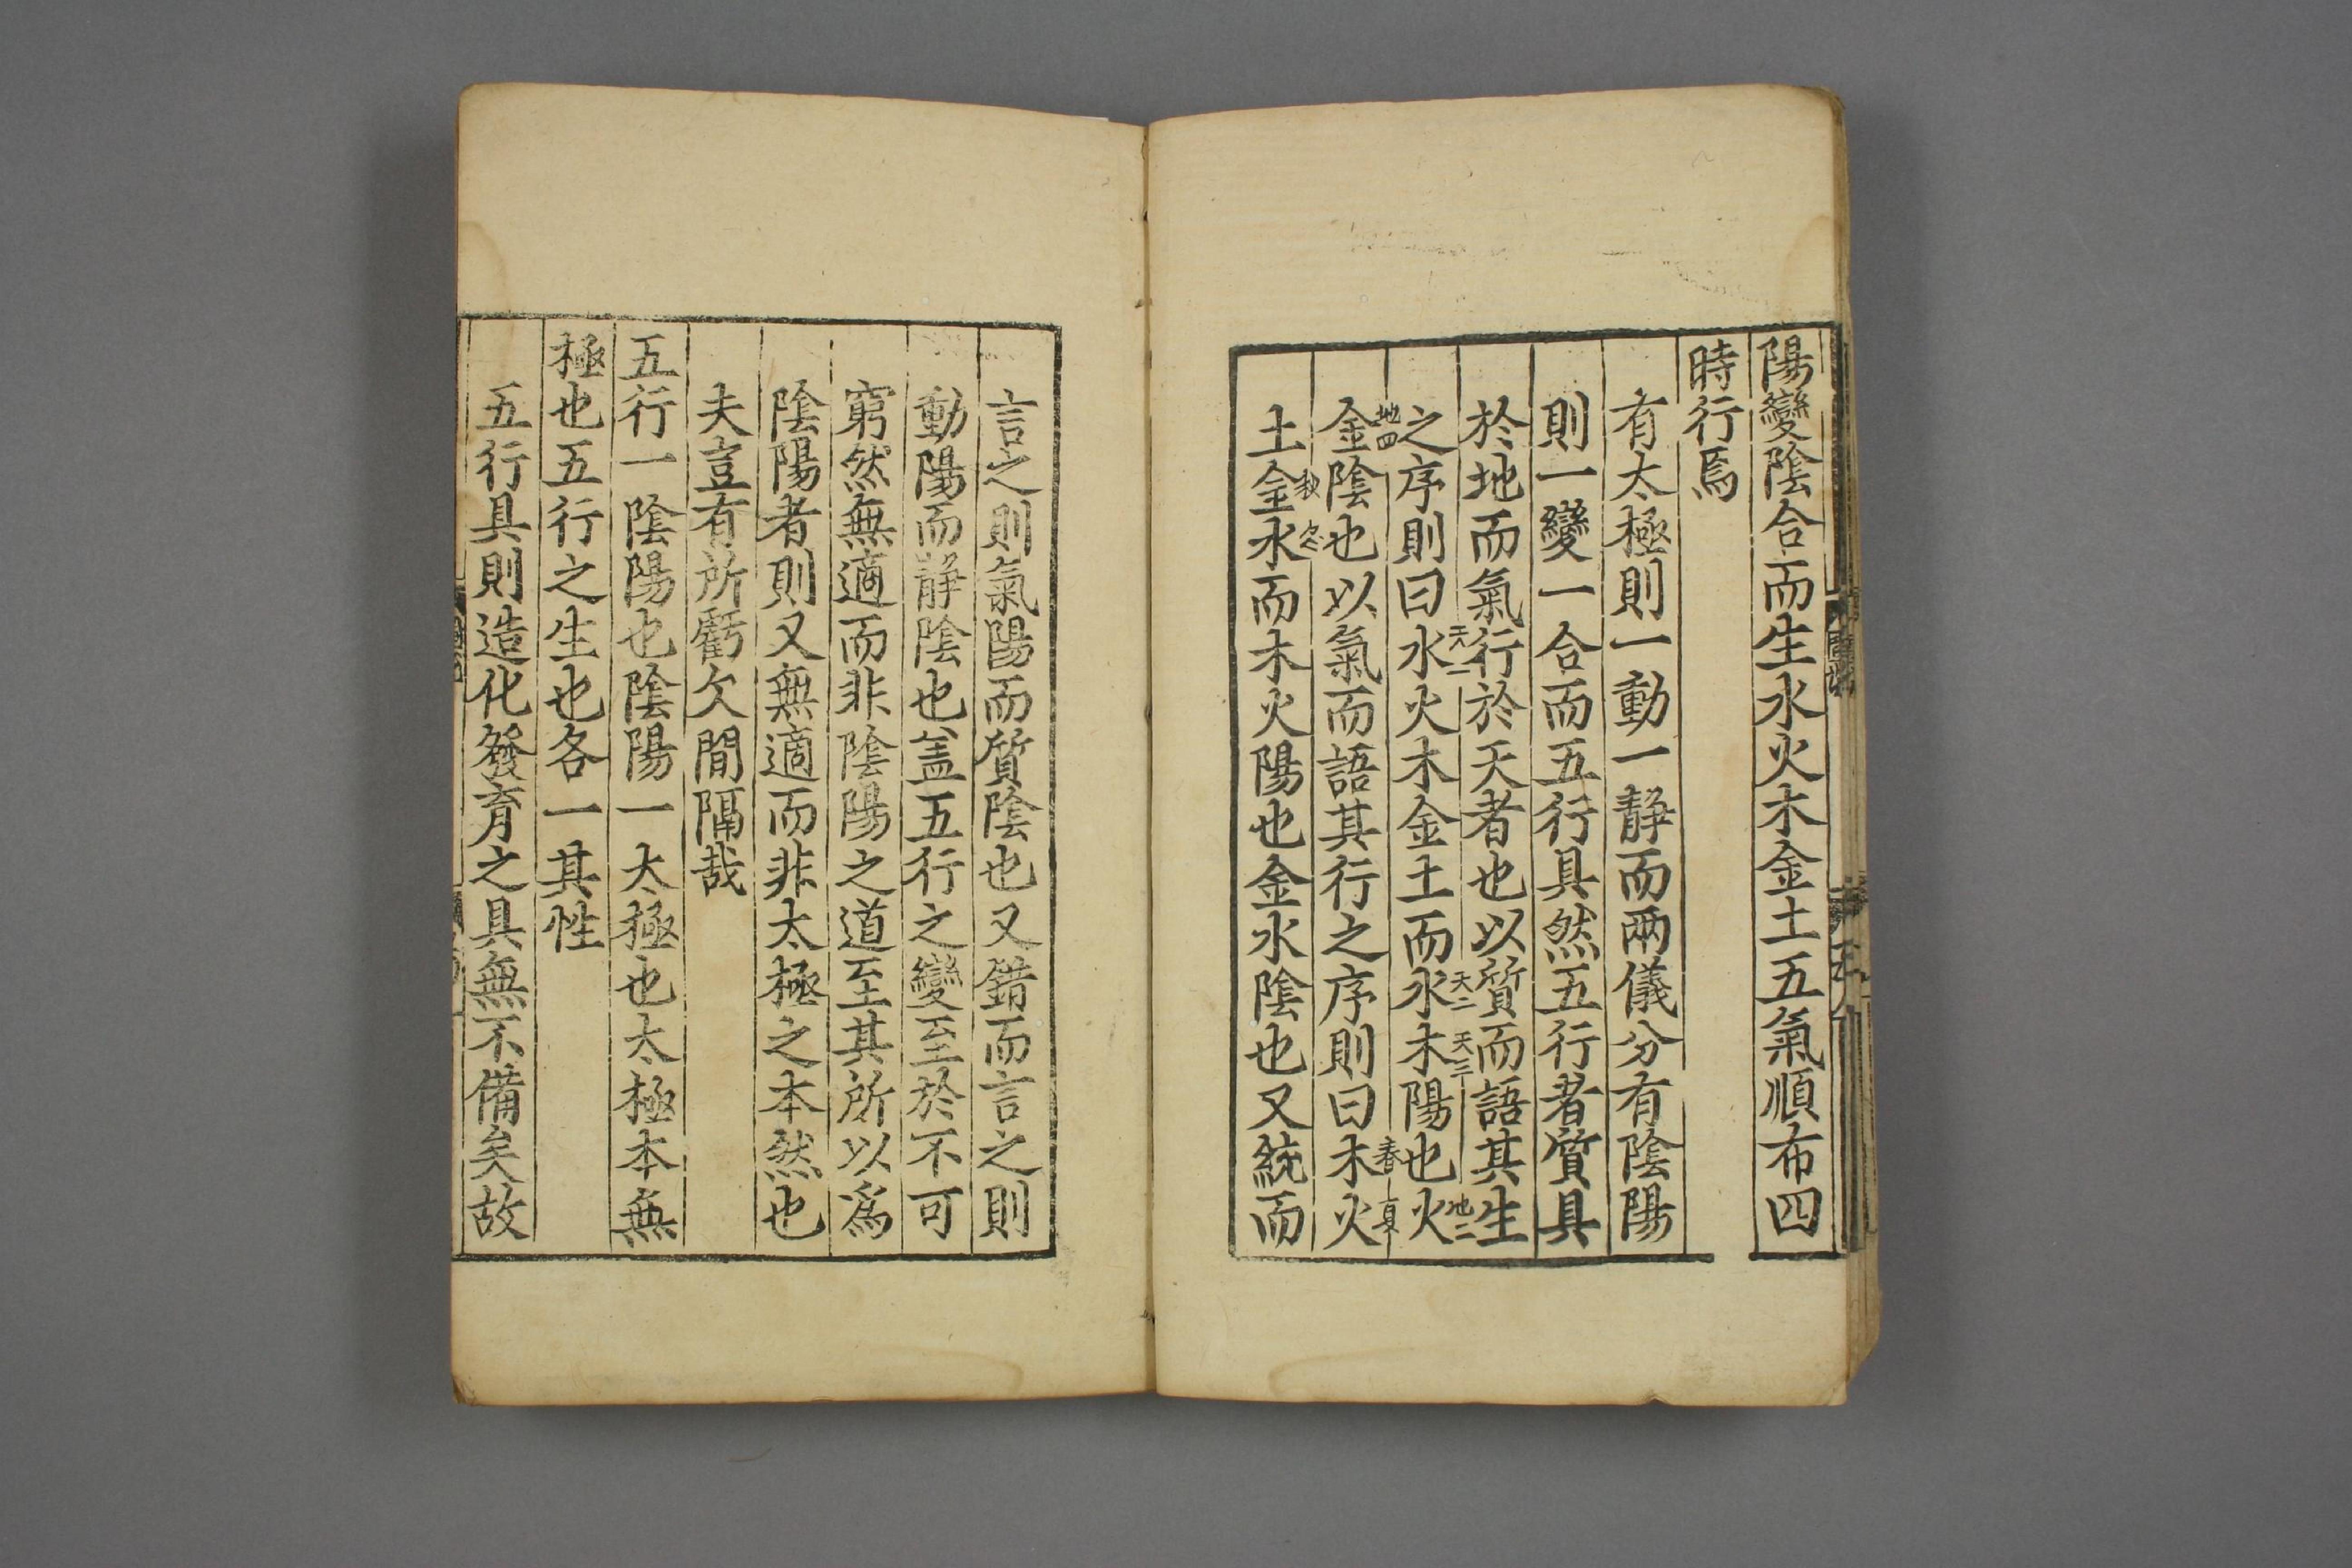 陽變陰合而生水火木金土五氣順布四
時行焉
有太極則一動一靜而兩儀分有陰陽
則一變一合而五行具然五行者質具
於地而氣行於天者也以質而語其生
天一
天二
天三
地二
之序則曰水火木金土而水木陽也火
地四
春
夏
金陰也以氣而語其行之序則曰木火
秋
冬
土金水而木火陽也金水陰也又統而
言之則氣陽而質陰也又錯而言之則
動陽而靜陰也盖五行之變至於不可
窮然無適而非陰陽之道至其所以爲
陰陽者則又無適而非太極之本然也
夫豈有所虧欠間隔哉
五行一陰陽也陰陽一太極也太極本無
極也五行之生也各一其性
五行具則造化發育之具無不備矣故